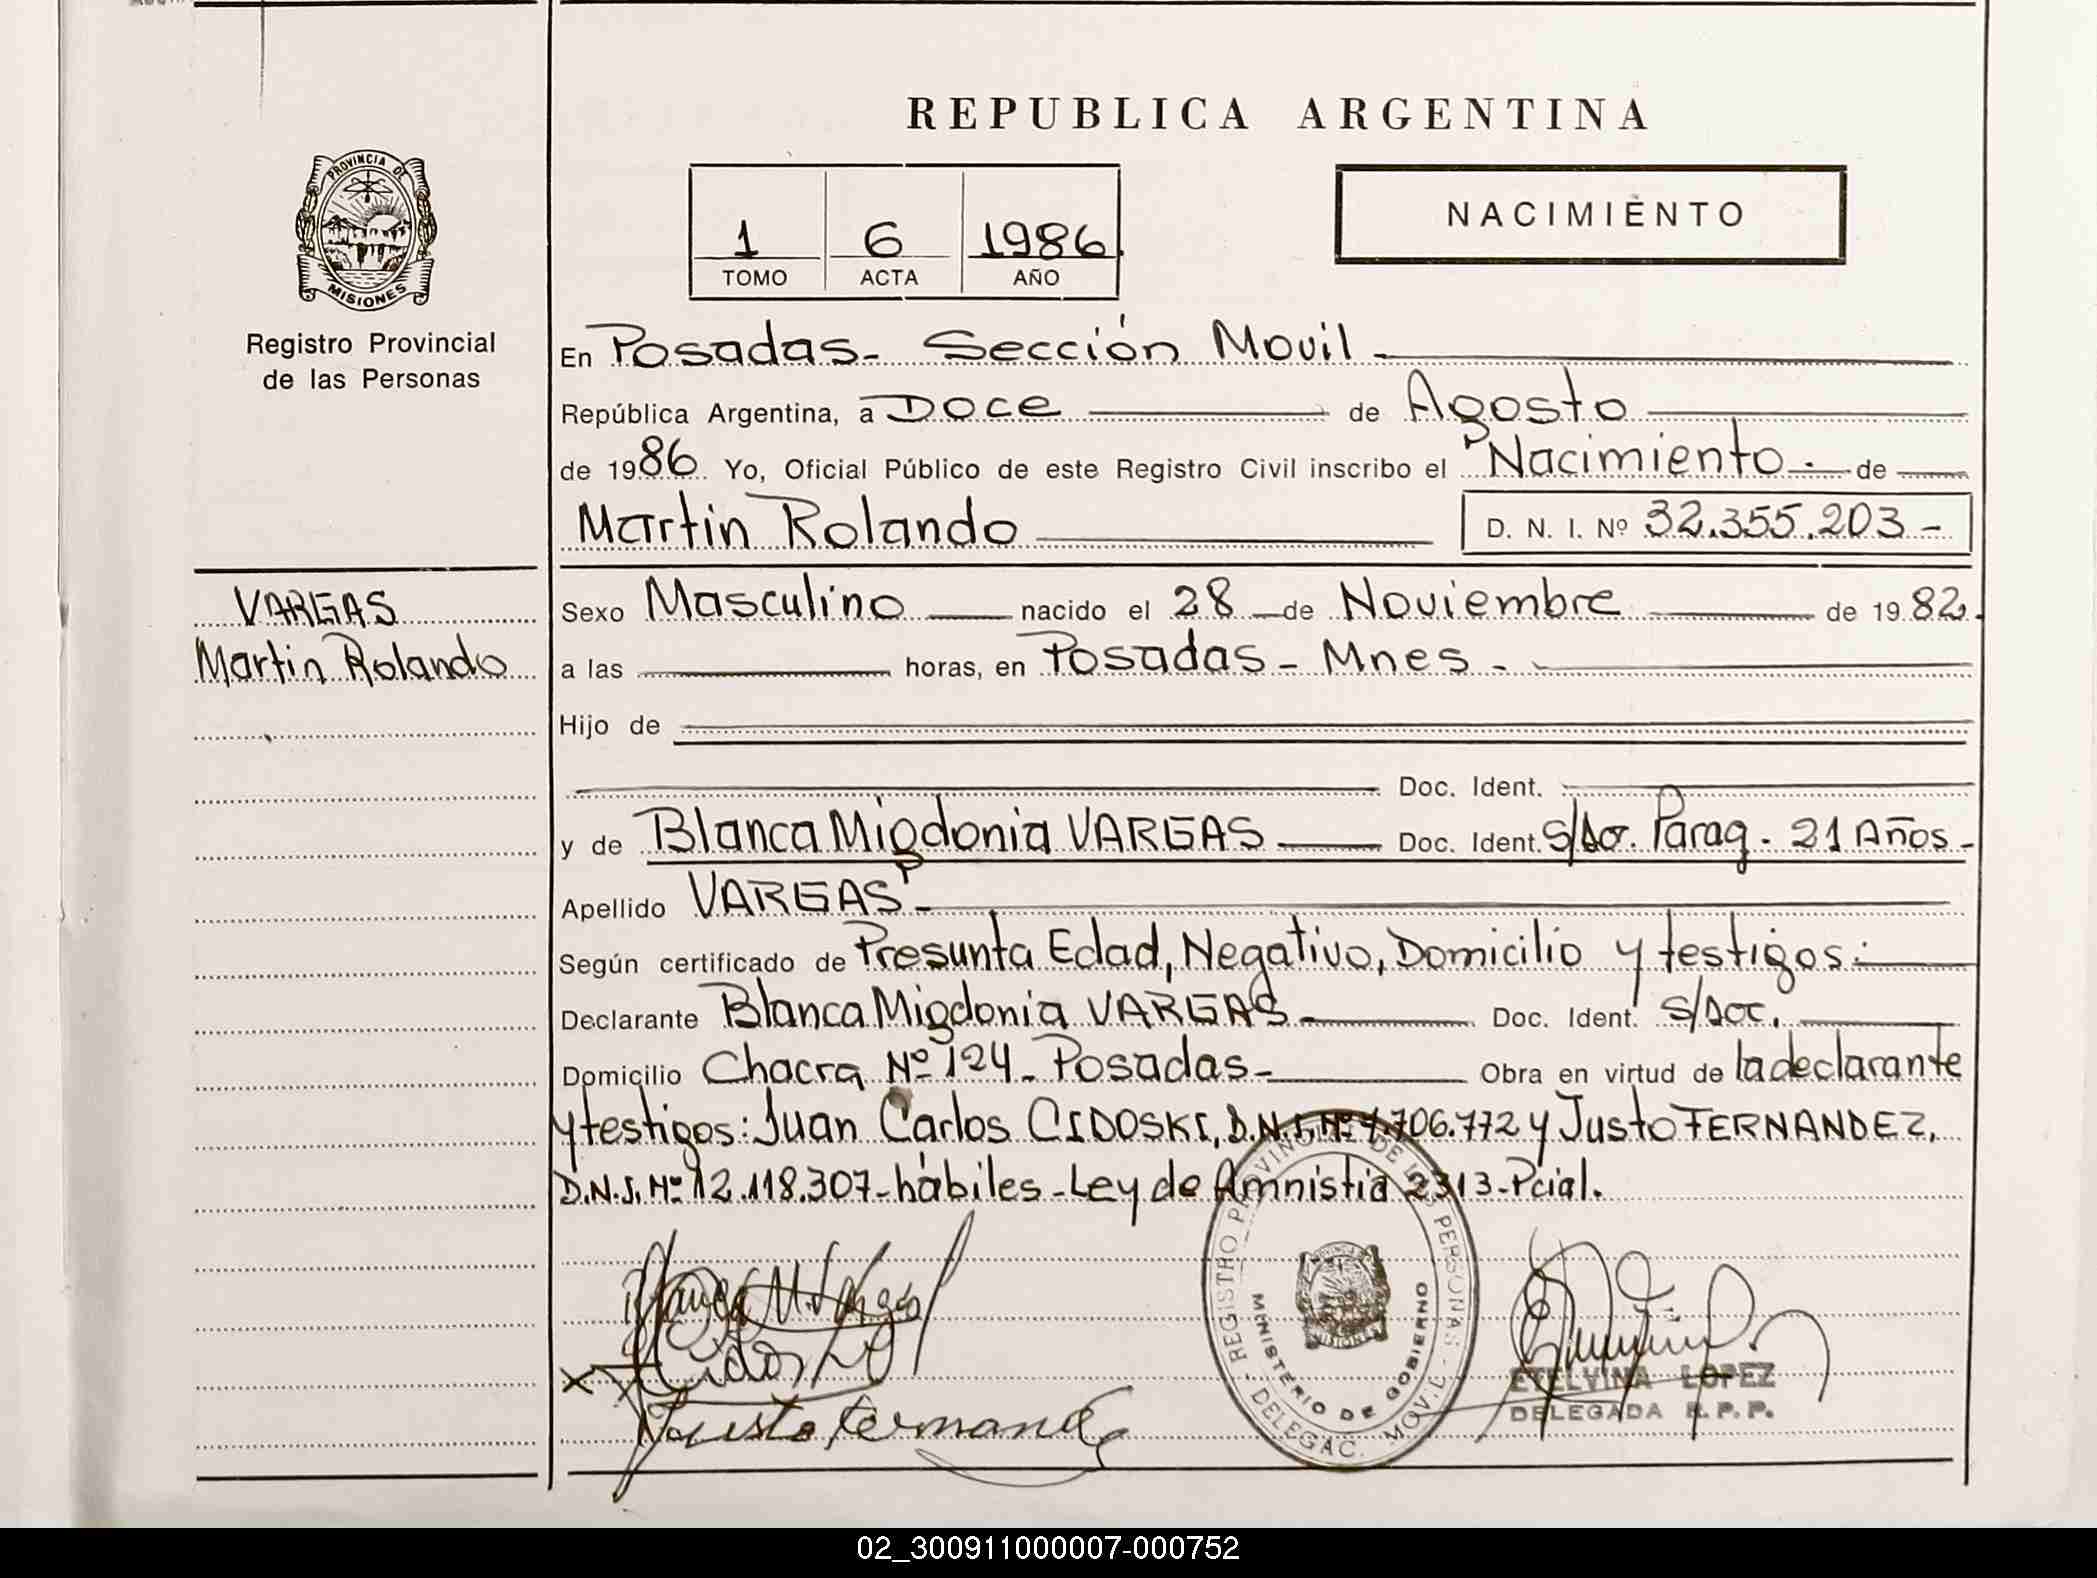 REPUBLICA ARGENTINA
PROVINCIA DE
MISIONES
Registro Provincial
de las Personas
1 6 1986
TOMO ACTA AÑO
NACIMIENTO
En Posadas - Sección Movil -
República Argentina, a Doce de Agosto
de 1986. Yo, Oficial Público de este Registro Civil inscribo el Nacimiento - de
Martin Rolando D. N. I. Nº 32.355.203 -
VARGAS
Martin Rolando
Sexo Masculino nacido el 28 de Noviembre de 1982.
a las horas, en Posadas - Mnes -
Hijo de
Doc. Ident.
y de Blanca Migdonia VARGAS Doc. Ident. S/Do. Parag. 21 Años -
Apellido VARGAS -
Según certificado de Presunta Edad, Negativo, Domicilio y testigos:
Declarante Blanca Migdonia VARGAS Doc. Ident. S/Doc.
Domicilio Chacra Nº 124 - Posadas - Obra en virtud de la declarante
y testigos: Juan Carlos CIDOSKI, D.N.I. Nº 7.706.772 y Justo FERNANDEZ,
D.N.I. Nº 12.118.307 - hábiles - Ley de Amnistia 2313 - Pcial.
REGISTRO PROVINCIAL DE LAS PERSONAS
MINISTERIO DE GOBIERNO
- DELEGAC. MOVIL -
Blanca M. Vargas
Justo Fernandez
ETELVINA LOPEZ
DELEGADA R. P. P.
02_300911000007-000752